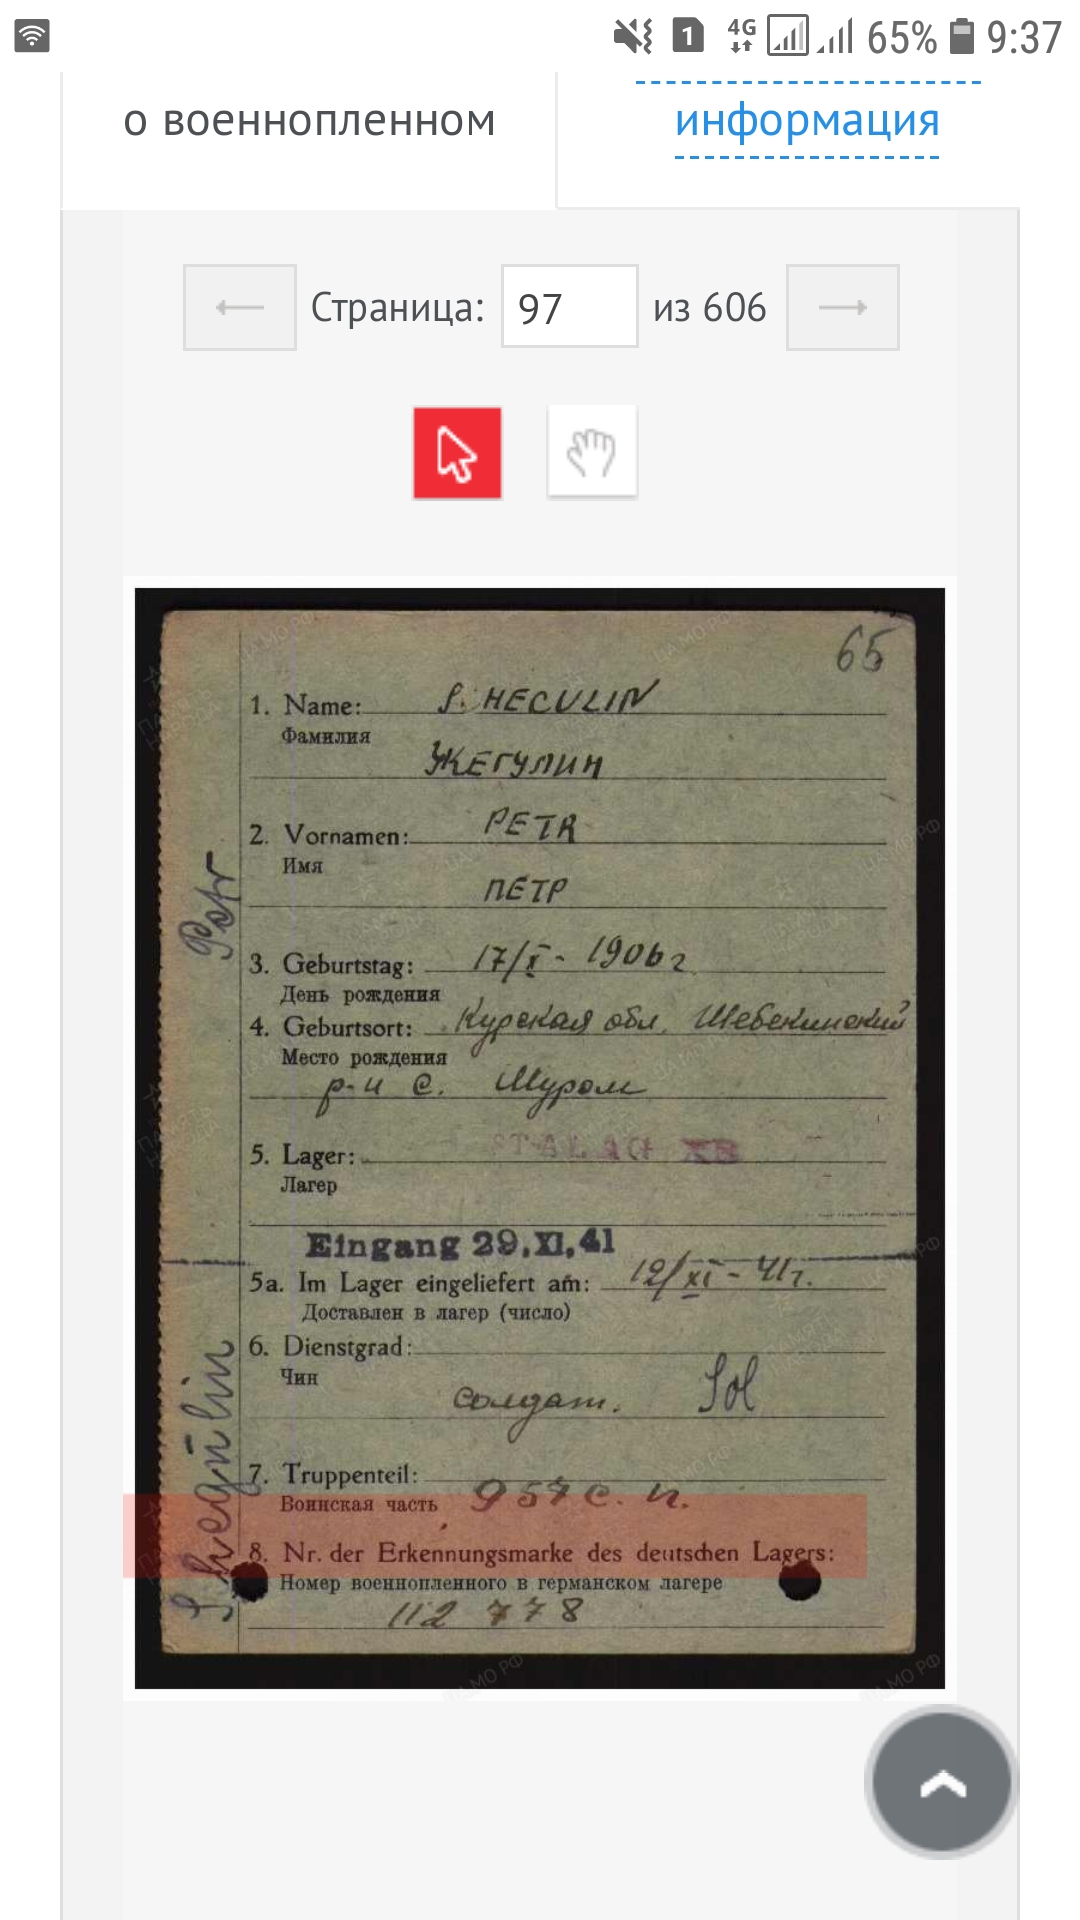 1 4G 65% 9:37
о военнопленном
информация
Страница: 97 из 606
65
1. Name: SHECULIN
Фамилия
ЖЕГУЛИН
2. Vornamen: PETR
Имя
ПЕТР
Petr
3. Geburtstag: 17/X - 1906 г
День рождения
4. Geburtsort: Курская обл. Шебекинский
Место рождения
р-н с. Муром
5. Lager: STALAG XB
Лагер
Eingang 29.XI.41
5a. Im Lager eingeliefert am: 12/XI - 41 г.
Доставлен в лагер (число)
6. Dienstgrad:
Чин
солдат. Sol
Shegulin
7. Truppenteil:
Воинская часть 957 с. п.
8. Nr. der Erkennungsmarke des deutschen Lagers:
Номер военнопленного в германском лагере
112 778